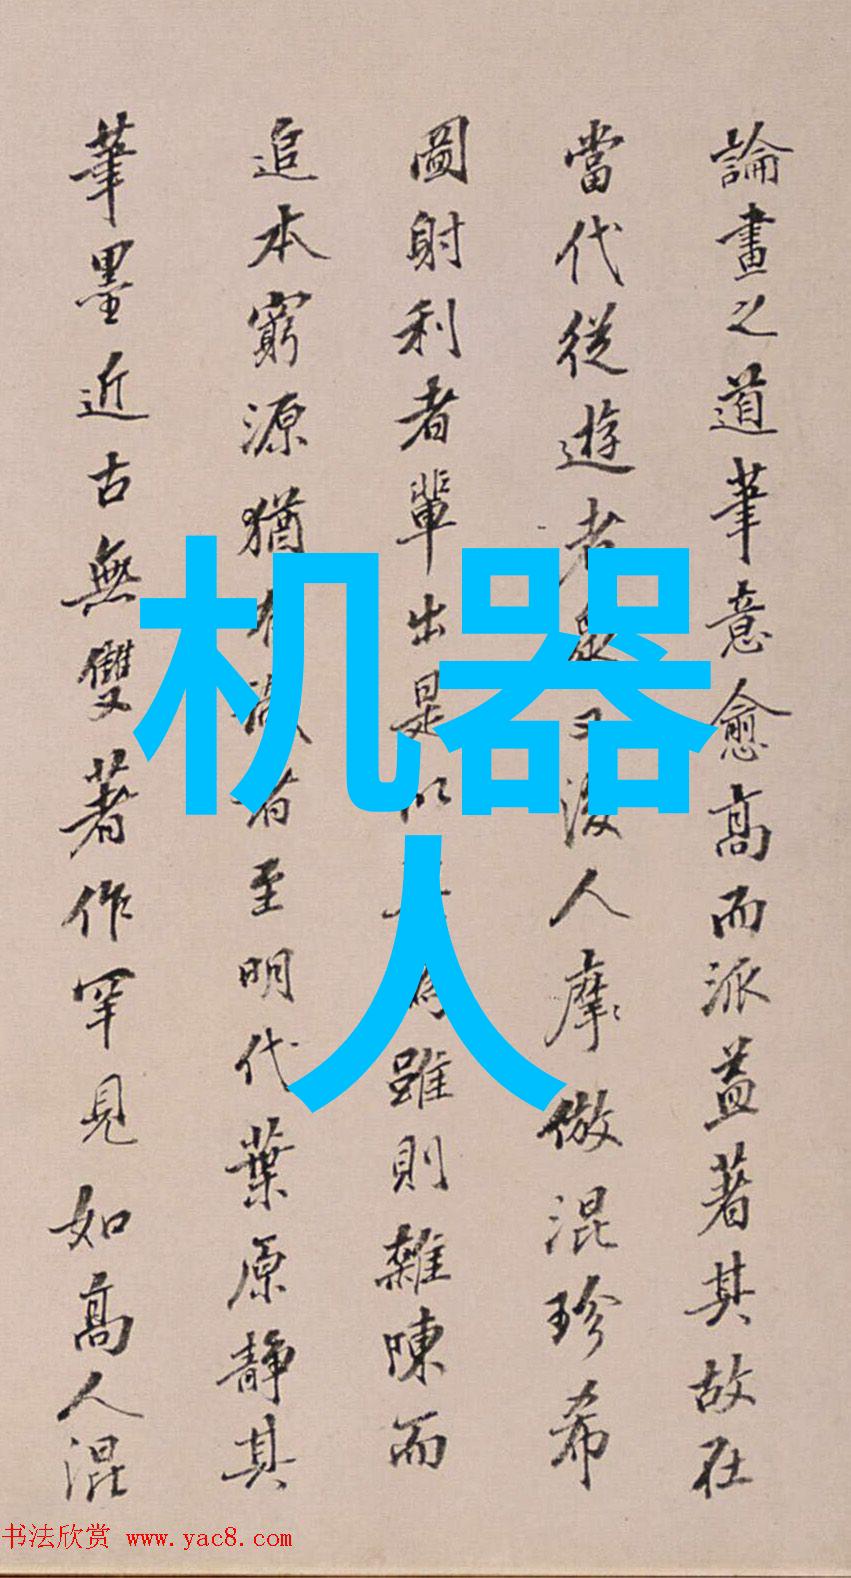 論畫之道筆意愈高而派益著其故在
當代從遊者衆又後人摩倣混珍希
圖射利者輩出是以為雖則雜陳而
追本窮源猶有識者至明代葉原靜其
筆墨近古無雙著作罕見如高人混
机器
人
书法欣赏 www.yac8.com